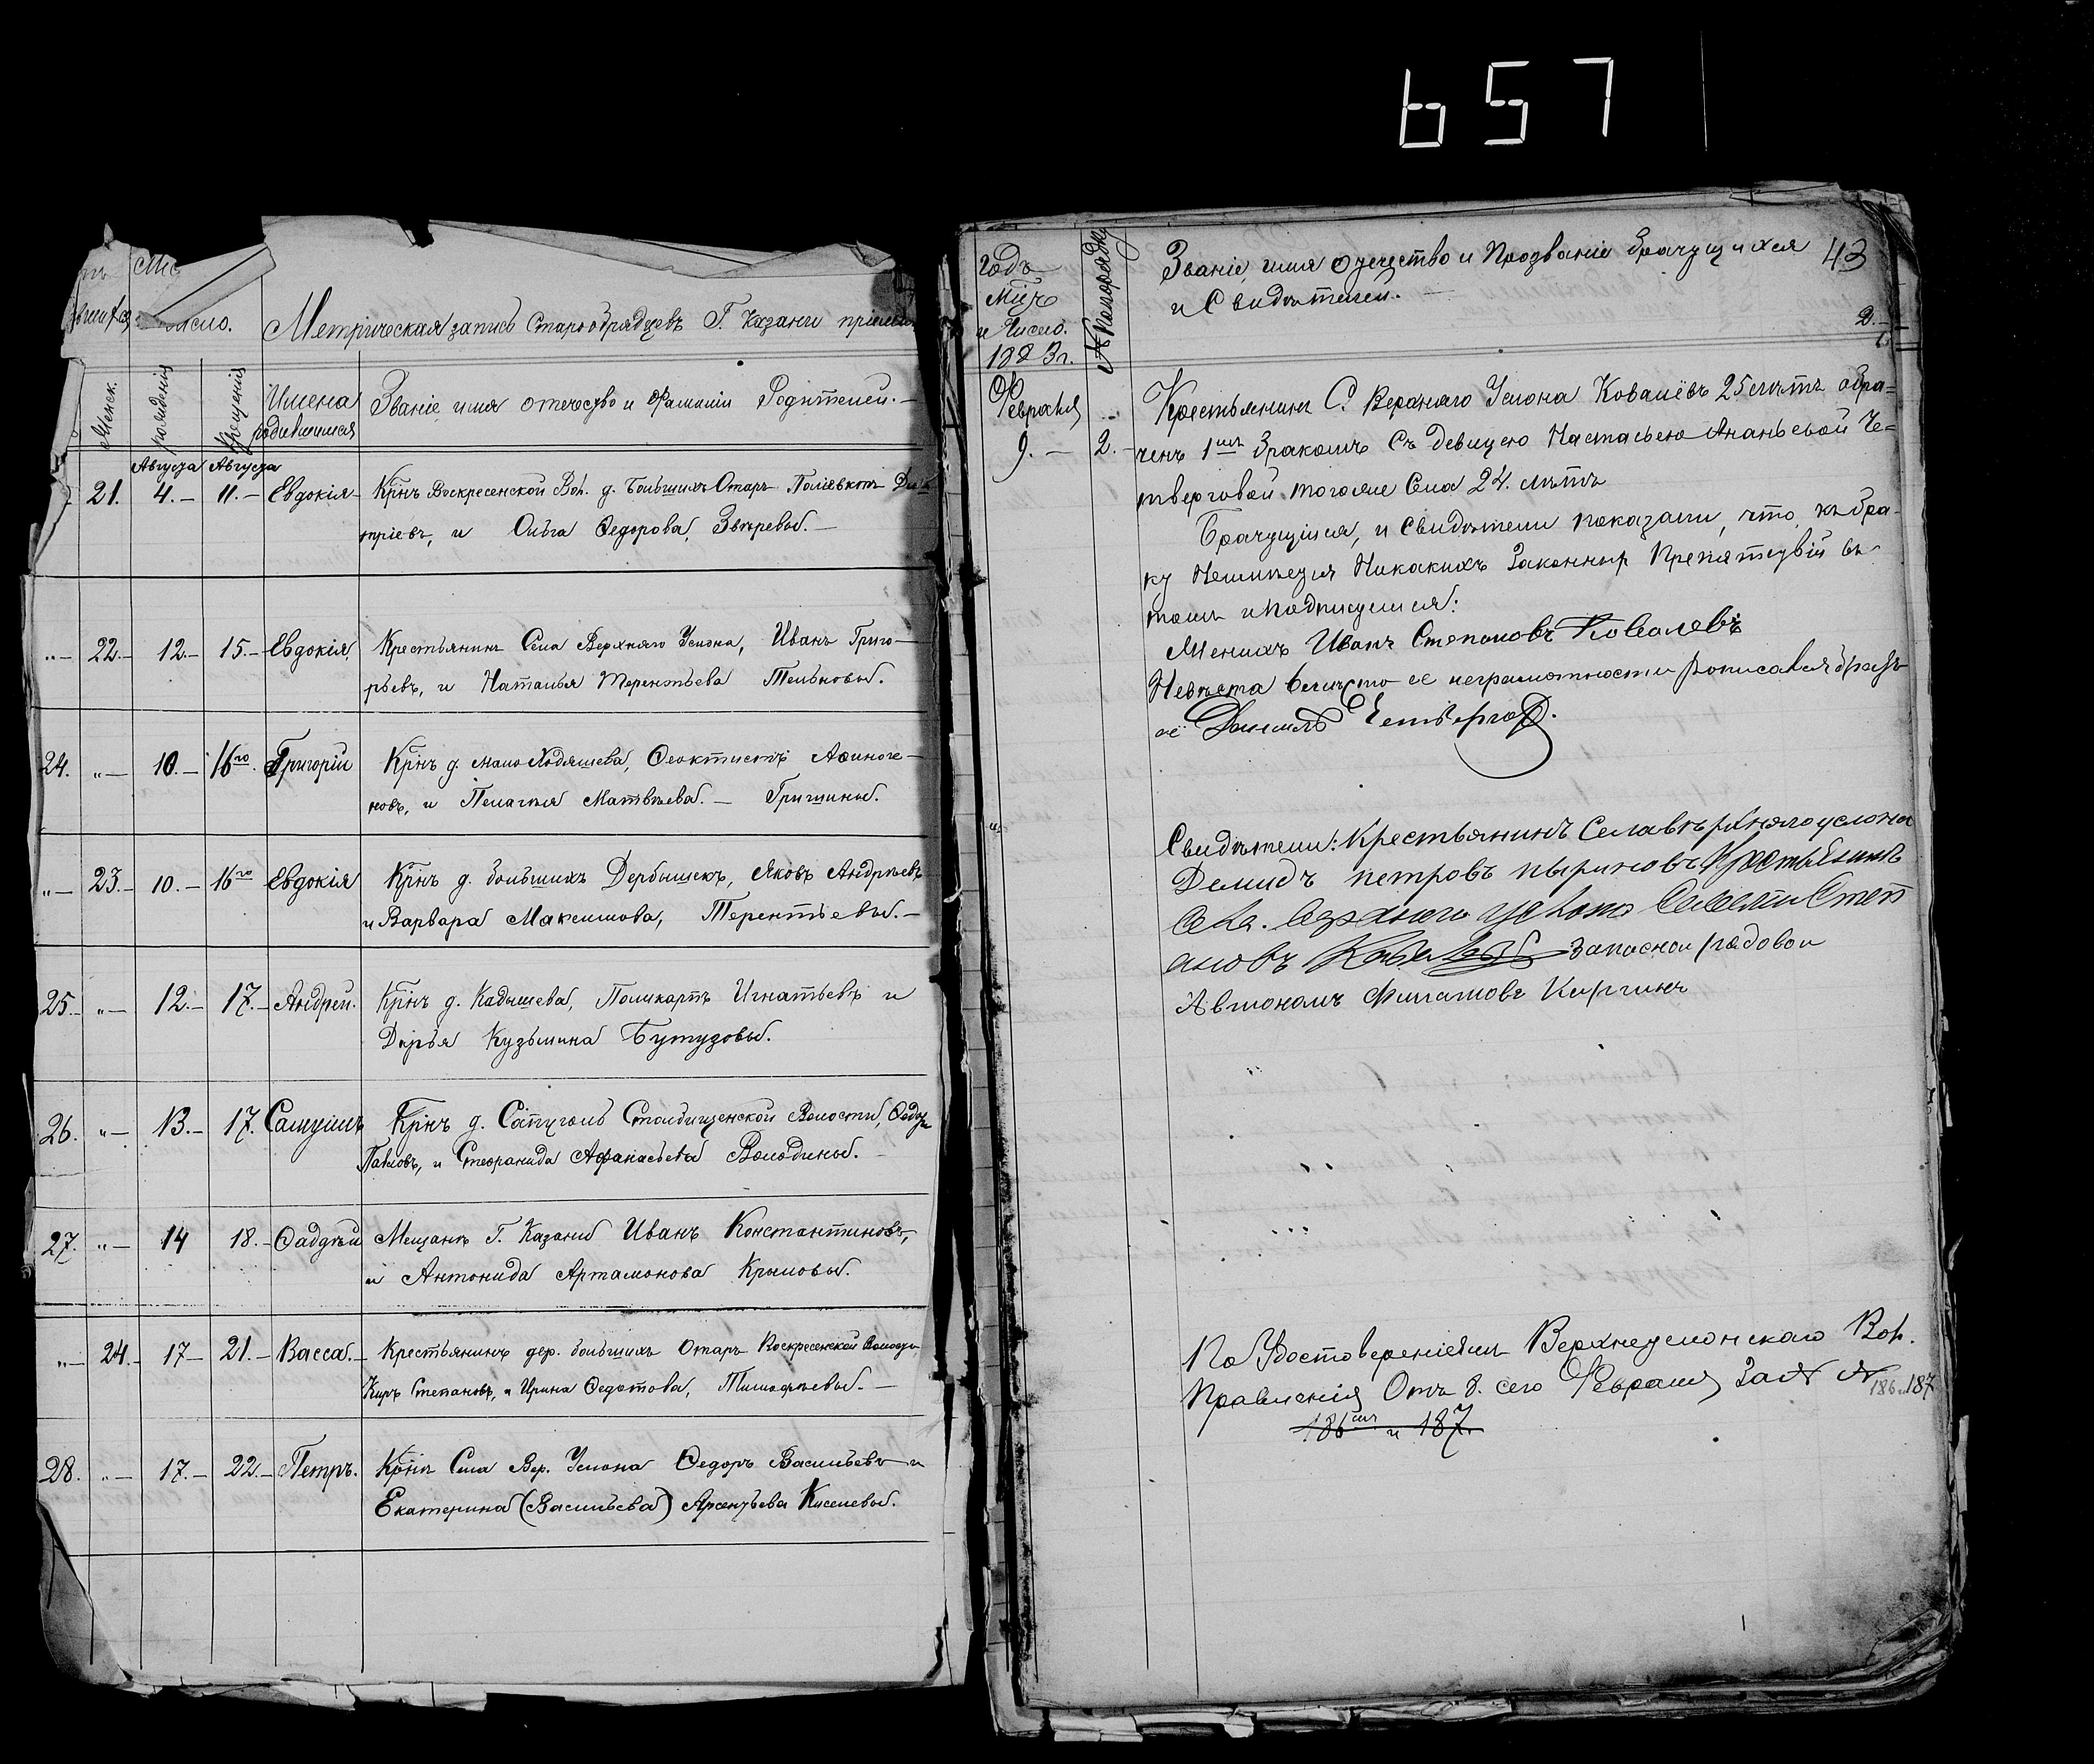 657
число.
Метрическая запись Старообрядцевъ Г. Казани
Женск.
рожденія
Крещенія
Имена родившихся
Званіе имя отечество и Фамилія Родителей.-
Августа Августа
21. 4.- 11.- Евдокія- Крнъ Воскресенской Вол. д. Большихъ Отаръ
тріевъ, и Ольга Ѳедорова, Звѣревы.-
"- 22.- 12.- 15.- Евдокія, Крестьянинъ Села Верхняго Услона, Иванъ Григо-
рьевъ, и Наталья Терентьева Тельновы.
24. "- 10.- 16го. Григорій Крнъ д. мало Кодяшева, Ѳеоктистъ Аѳиноге-
новъ, и Пелагея Матвѣева.- Гришины.
"- 23.- 10.- 16го Евдокія Крнъ д. большихъ Дербышекъ, Яковъ Андрѣевъ
и Варвара Максимова, Терентьевы.-
25.- "- 12.- 17.- Андрей. Крнъ д. Кадышева, Поликарпъ Игнатьевъ и
Дарья Кузьмина Бутузовы.
26. "- 13.- 17. Самуилъ Крнъ д. Столбищенской Волости,
Павловъ, и Стефанида Афанасьева Володины.
27. "- 14 18.- Ѳаддѣй Мещанъ Г. Казани Иванъ Константиновъ,
и Антонида Артамонова Крыловы.
"- 24.- 17- 21.- Васса.- Крестьянинъ дер. большихъ Отаръ Воскресенской Волости
Киръ Степановъ, и Ирина Ѳедотова, Тимофѣевы.-
28. "- 17.- 22.- Петръ. Крнъ Села Вер. Услона Ѳедоръ Васильевъ и
Екатерина (Васильева) Арсентьева Киселевы.
Годъ
Мцъ
и Число.
1883г.
№ Попорядку
Званіе, имя отечество и Прозваніе брачущихся
и Свидѣтелей.-
43
2.-
Февраля
9.- 2.-
Крестьянинъ С. Верхняго Услона Ковалёвъ 25 лѣтъ обра-
ченъ 1мъ бракомъ Съ девицею Настасьею Ананьевой Че-
тверговой тогоже Села 24. лѣтъ
Брачущіися, и Свидѣтели показали, что, къ бра-
ку Неимѣется Никакихъ Законныхъ Препятствій въ
томъ и подписуемся:
Женихъ Иванъ Степановъ Ковалевъ
Невѣста вмѣсто ее неграмотности росписался братъ
её Данилъ Четвергов.
Свидѣтели: Крестьянинъ Села верхняго услона
Демидъ петровъ пыриновъ Крестьянинъ
Села. верхнего услона Савелей Степ
ановъ Ковалевъ запасной рядовои
Автономъ Филатовъ Киргинъ
По Удостовереніямъ Верхнеуслонскаго Вол.
Правленія Отъ 8. сего Февраля, За № № 186 и 187
186мъ и 187.